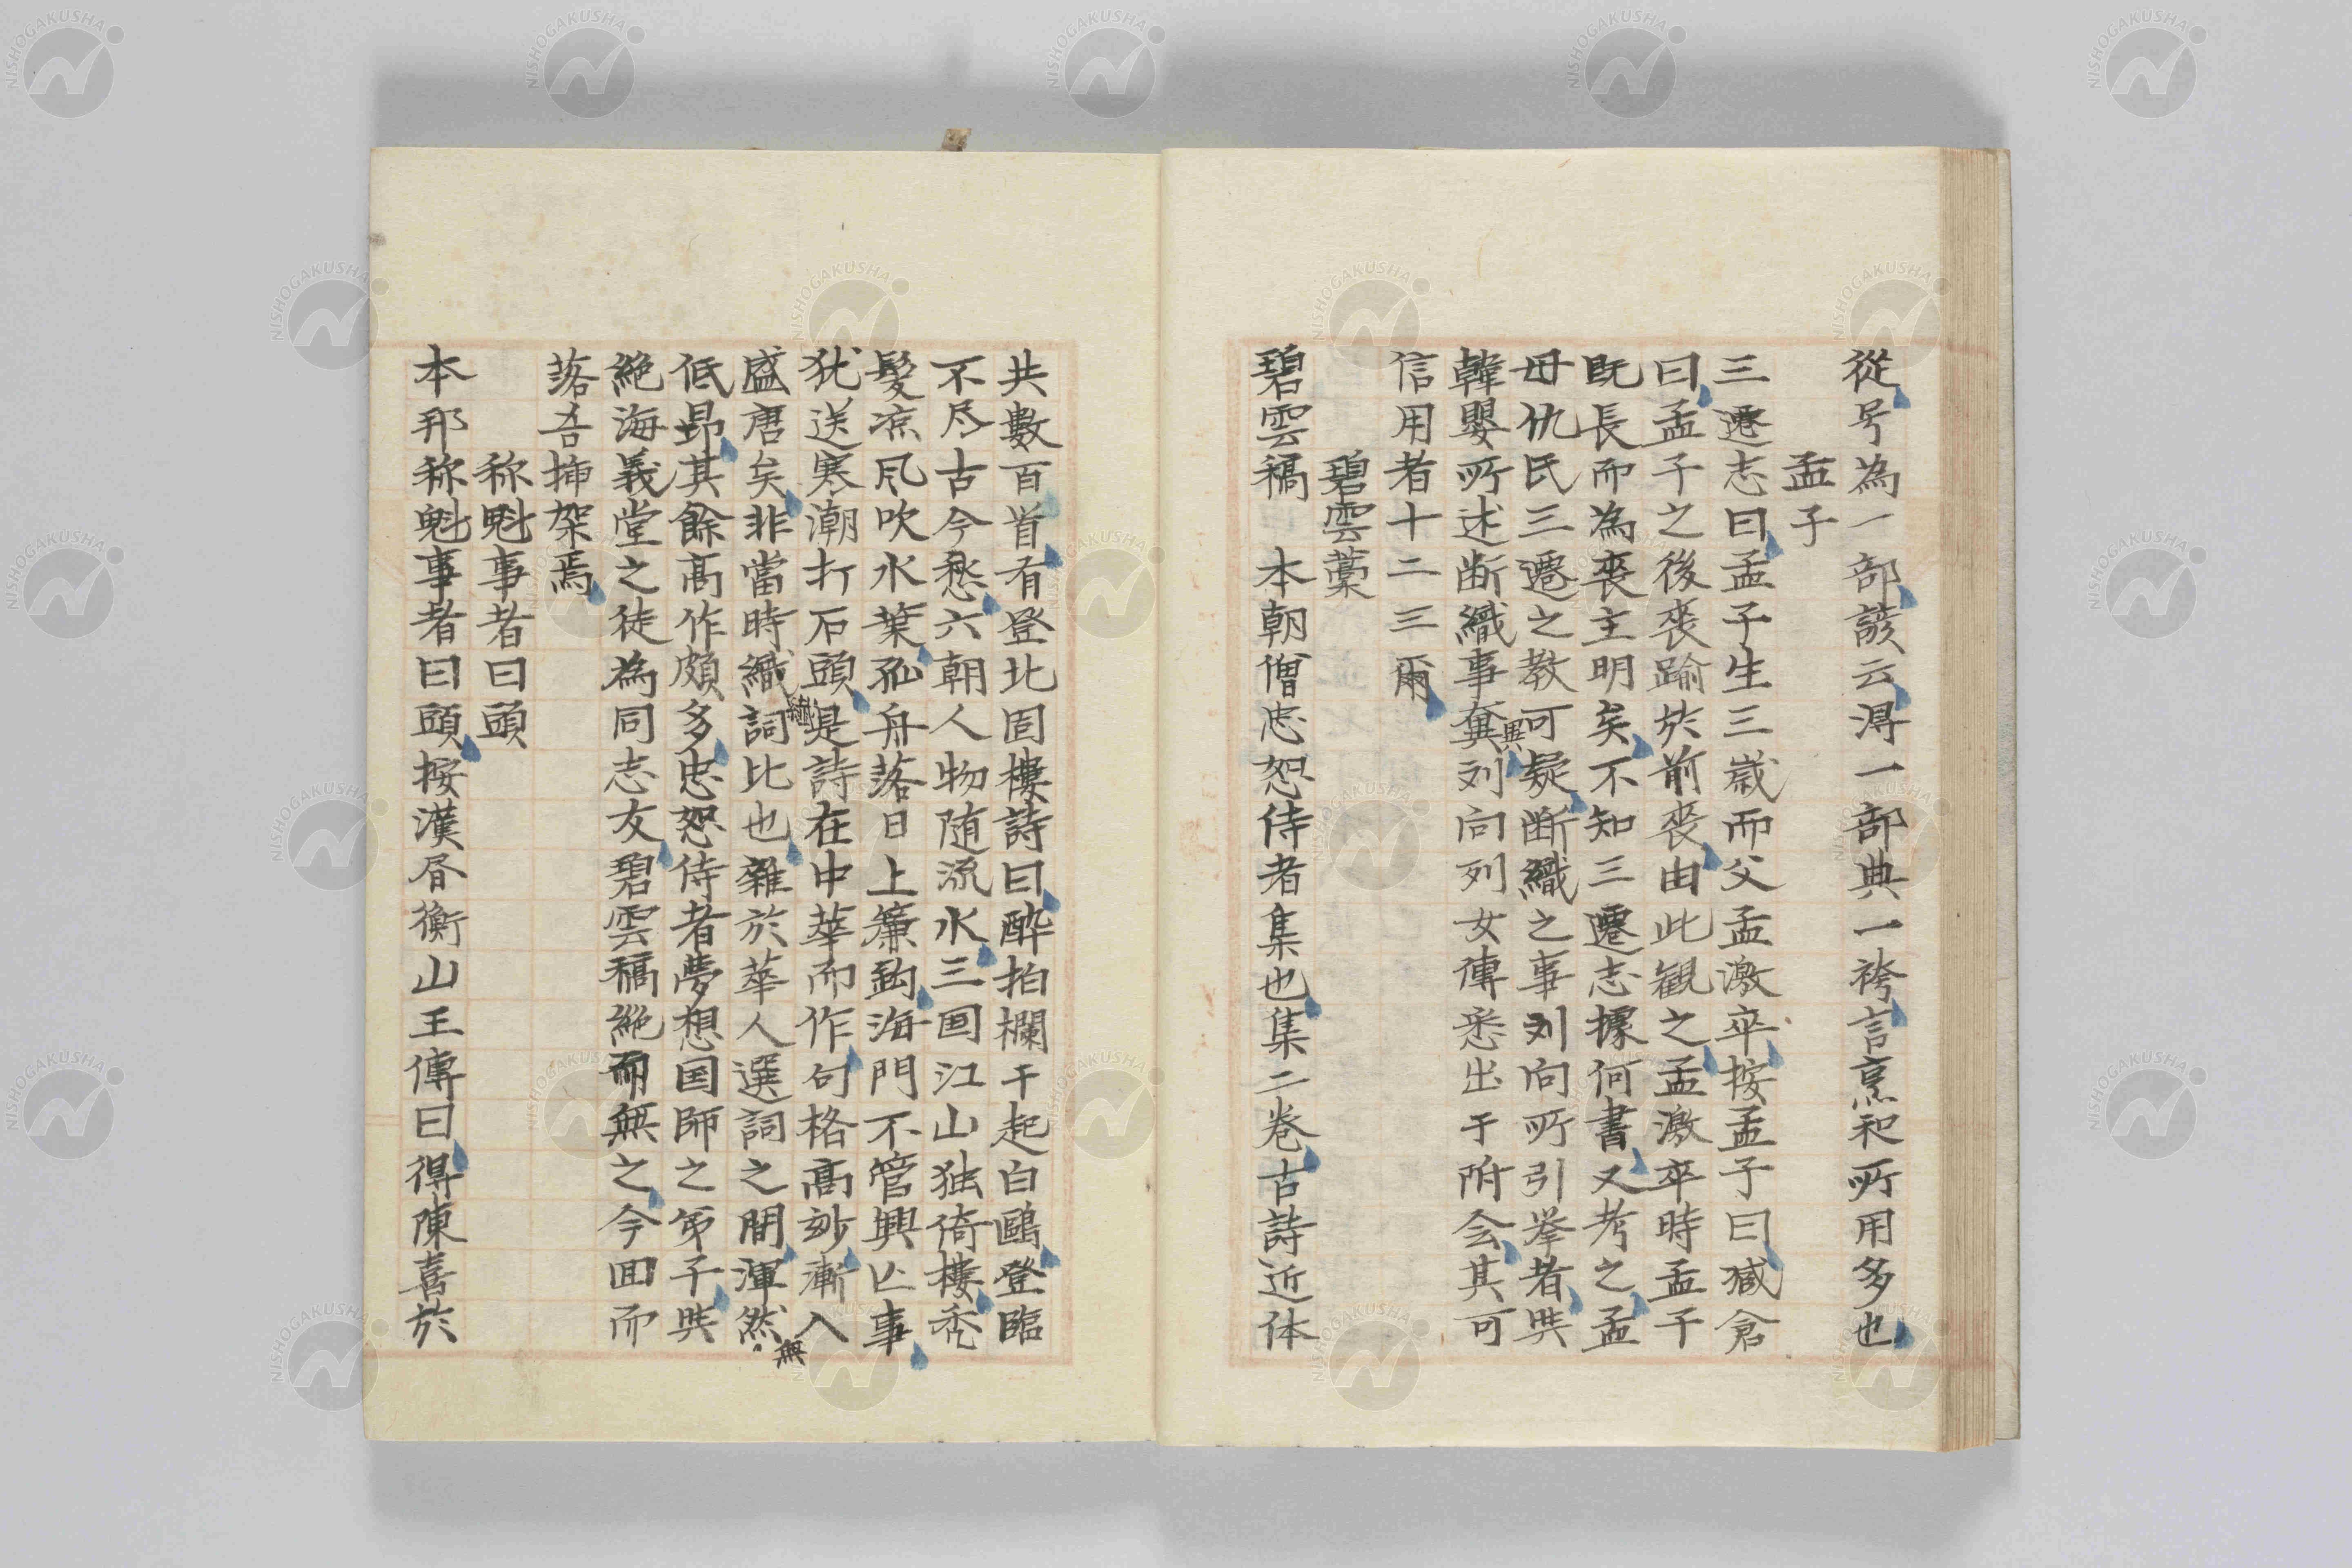 從号為一部諺云得一部典一袴言烹和所用多也
孟子
三遷志曰孟子生三歳而父孟激卒按孟子曰臧倉
曰孟子之後喪踰於前喪由此観之孟激卒時孟子
既長而為喪主明矣不知三遷志據何書又考之孟
母仇氏三遷之教可疑断織之事刘向所引挙者與
韓嬰所述断織事異刘向列女傳悉出于附会其可
信用者十二三爾
碧雲藁
碧雲稿 本朝僧忠恕侍者集也集二巻古詩近体
共數百首有登北固樓詩曰酔拍欄干起白鷗登臨
不尽古今愁六朝人物随流水三囯江山独倚樓禿
髮凉風吹水葉孤舟落日上簾鈎海門不管興亡事
犹送寒潮打石頭是詩在中華而作句格高妙漸入
盛唐矣非當時纎詞比也雜於華人選詞之間渾然無
低昂其餘高作頗多忠恕侍者夢想国師之弟子與
絶海義堂之徒為同志友碧雲稿絶而無之今囬而
落吾挿架焉
称魁事者曰頭
本邦称魁事者曰頭按漢昏衡山王傳曰得陳喜於
NISHOGAKUSHA